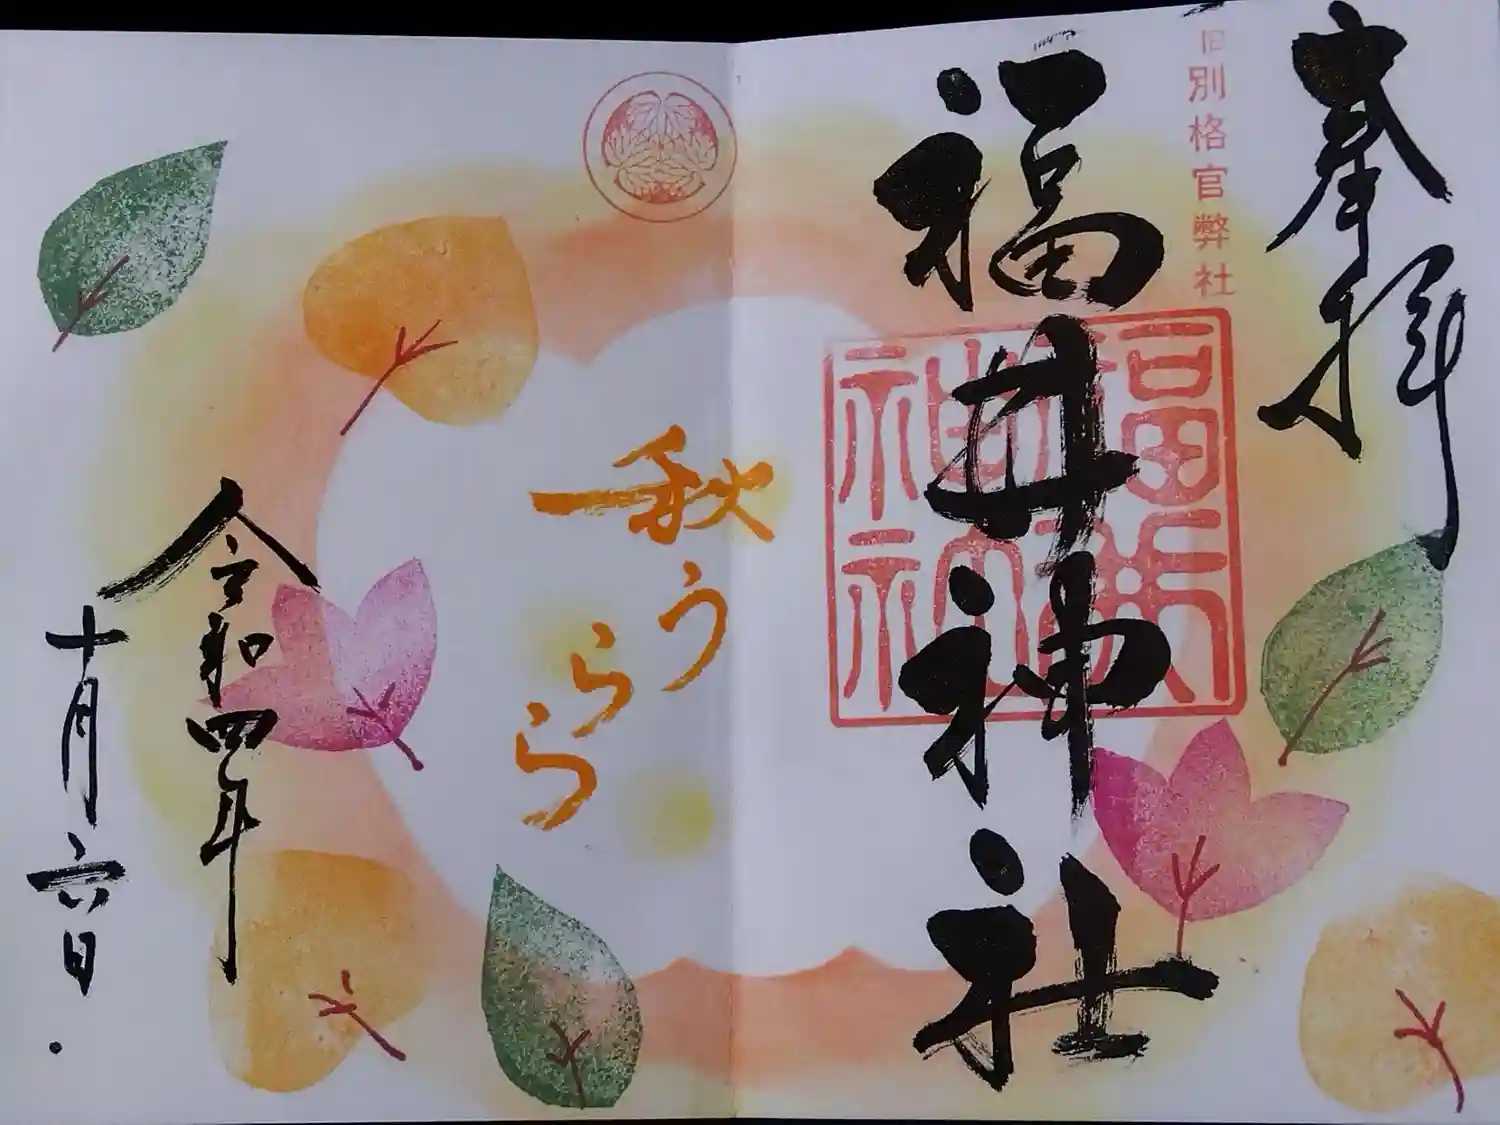 奉拝
旧別格官弊社
福井神社
福井
神社
秋うらら
令和四年
十月六日